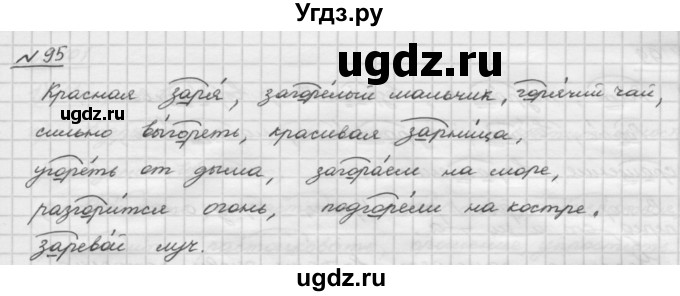 Угдз.ру
№ 95
ugdz.ru
Красная заря́, загоре́лый мальчик, горя́чий чай,
сильно вы́гореть, красивая зарни́ца,
угоре́ть от дыма, загора́ем на море,
разгори́тся огонь, подгоре́ли на костре.
зарево́й луч.
ugdz.ru